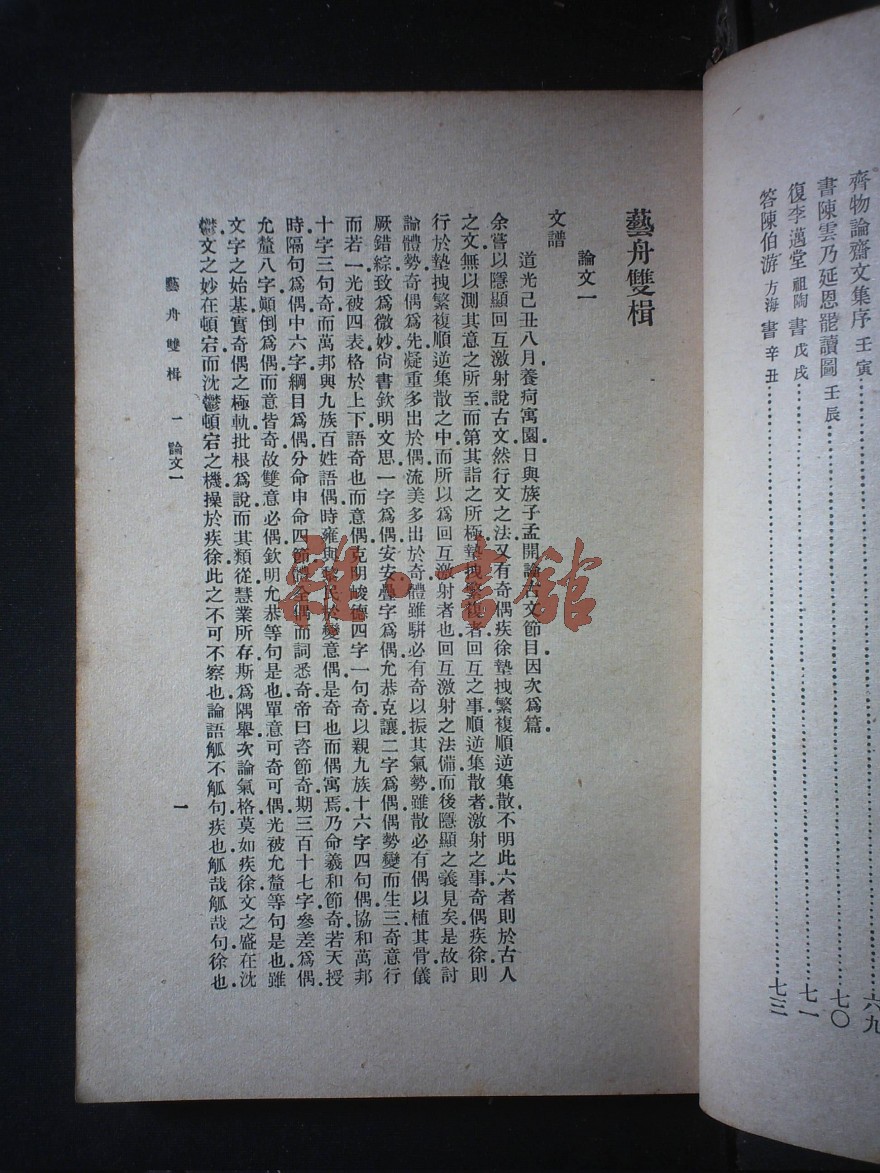 齊物論齋文集序 壬寅……………………六九
書陳雲乃延恩罷讀圖 壬辰……………………七〇
復李邁堂 祖陶 書 戊戌……………………七一
答陳伯游 方海 書 辛丑……………………七三
藝舟雙楫
論文一
文譜
道光己丑八月養疴寓園日與族子孟開論古文節目因次爲篇
余嘗以隱顯回互激射說古文然行文之法又有奇偶疾徐墊拽繁複順逆集散不明此六者則於古人
之文無以測其意之所至而第其詣之所極墊拽繁複者回互之事順逆集散者激射之事奇偶疾徐則
行於墊拽繁複順逆集散之中而所以爲回互激射者也回互激射之法備而後隱顯之義見矣是故討
論體勢奇偶爲先凝重多出於偶流美多出於奇體雖駢必有奇以振其氣勢雖散必有偶以植其骨儀
厥錯綜致爲微妙尙書欽明文思一字爲偶安安疊字爲偶允恭克讓二字爲偶偶勢變而生三奇意行
而若一光被四表格於上下語奇也而意偶克明峻德四字一句奇以親九族十六字四句偶協和萬邦
十字三句奇而萬邦與九族百姓語偶時雍與黎民於變意偶是奇也而偶寓焉乃命羲和節奇若天授
時隔句爲偶中六字綱目爲偶分命申命四節體全偶而詞悉奇帝曰咨節奇期三百十七字參差爲偶
允釐八字顚倒爲偶而意皆奇故雙意必偶欽明允恭等句是也單意可奇可偶光被允釐等句是也雖
文字之始基實奇偶之極軌批根爲說而其類從慧業所存斯爲隅舉次論氣格莫如疾徐文之盛在沈
鬱文之妙在頓宕而沈鬱頓宕之機操於疾徐此之不可不察也論語觚不觚句疾也觚哉觚哉句徐也
藝舟雙楫 一 論文一
一
雜·書館